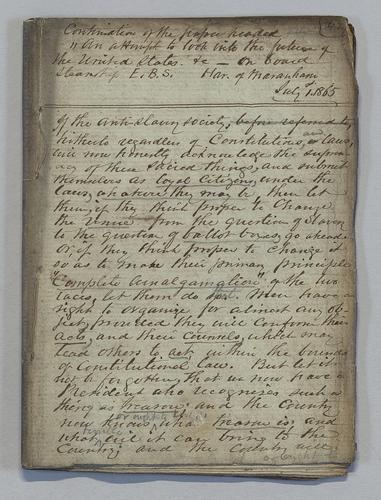 Continuation of the paper headed
"An attempt to look into the future of
the United States &c — on board
Steamship E.B.S. Har. of Maranham
July 1. 1865
If the anti-slavery society, before referred to,
hitherto regardless of Constitutions, and laws,
will now honestly acknowledge the suprem-
acy of these sacred things, and submit
themselves as loyal citizens, under the
laws, whatever they may be, then let
them, if they think proper to change
the venue from the question of slavery
to the question of ballot boxes, go ahead
Or if they think proper to change it
so as to make their primary principle
"Complete amalgamation" of the two
races, let them do so. Men have a
right to organize for almost any ob-
ject, provided they will conform their
acts, and their counsels, which may
lead others to act, within the bounds
of Constitutional law. But let it
not be forgotten, that we now have a
President who recognizes such a
thing as treason; and the Country
now knows what treason is; and
what evil it can bring to the
Country; and the Country will